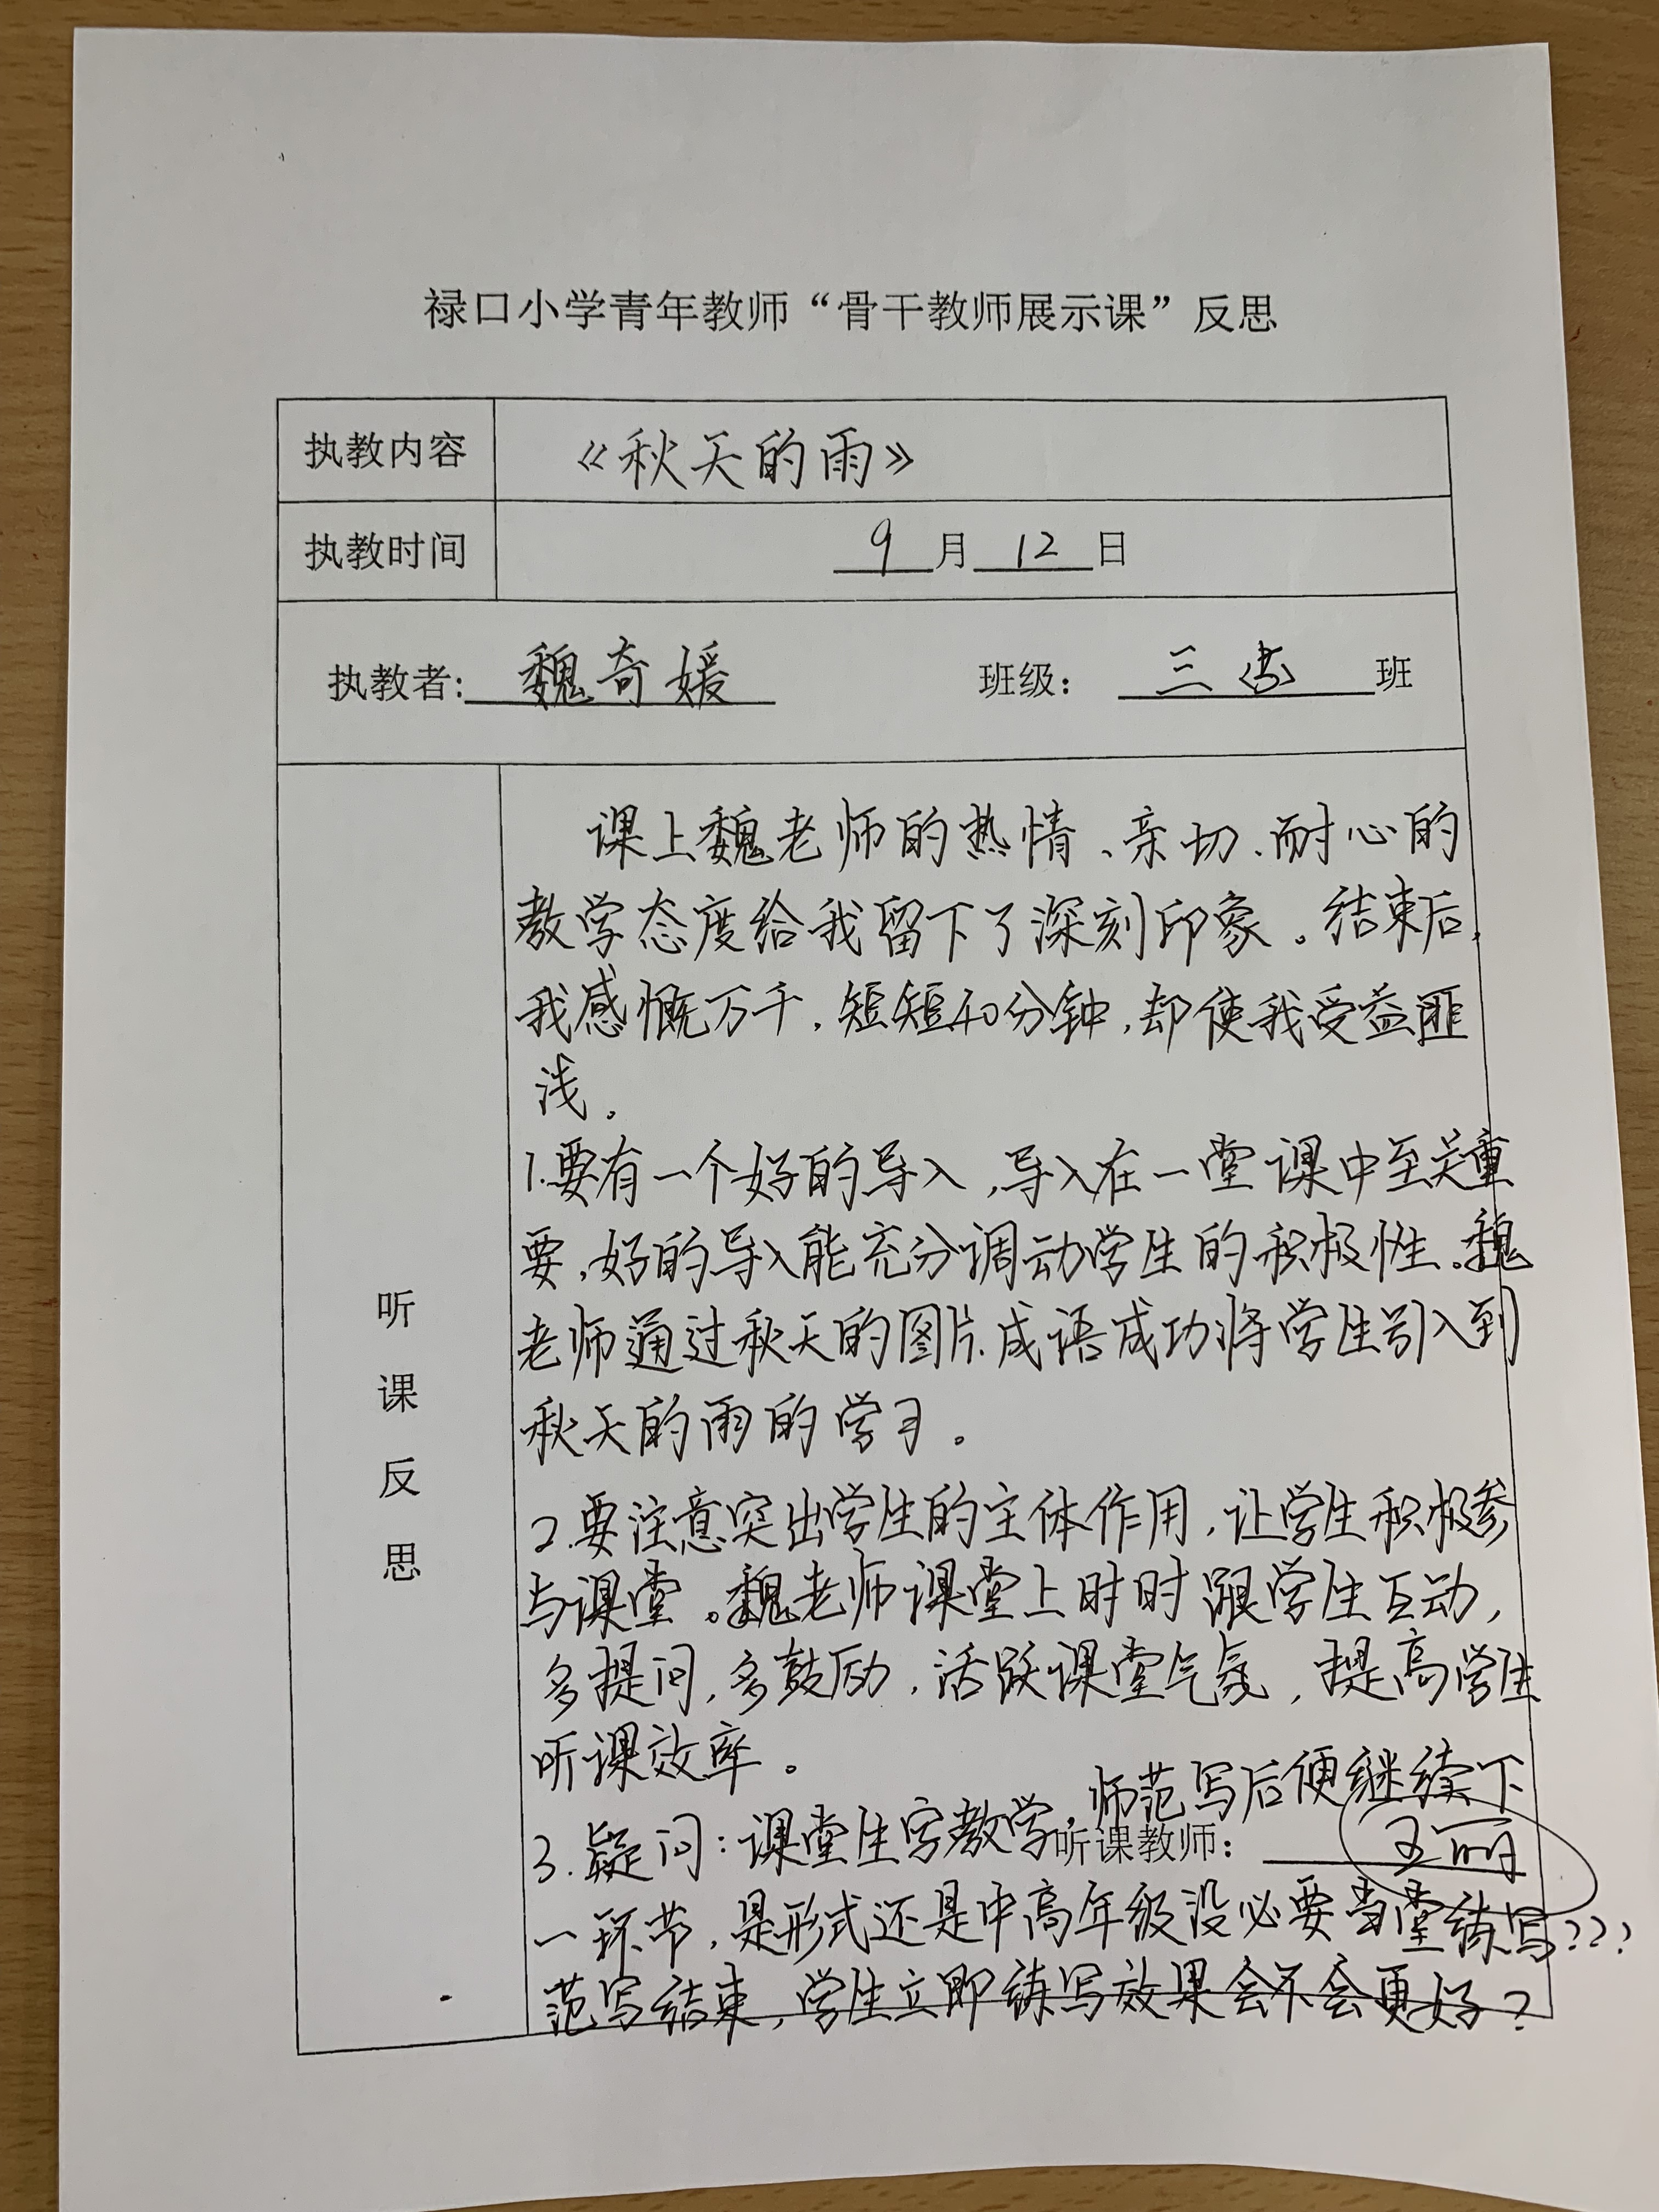 禄口小学青年教师“骨干教师展示课”反思
执教内容
《秋天的雨》
执教时间
9月12日
执教者:魏奇媛 班级：三 班
听课反思
课上魏老师的热情、亲切、耐心的
教学态度给我留下了深刻印象。结束后，
我感慨万千，短短40分钟，却使我受益匪
浅。
1.要有一个好的导入，导入在一堂课中至关重
要，好的导入能充分调动学生的积极性。魏
老师通过秋天的图片、成语成功将学生引入到
秋天的雨的学习。
2.要注意突出学生的主体作用，让学生积极参
与课堂。魏老师课堂上时时跟学生互动，
多提问，多鼓励，活跃课堂气氛，提高学生
听课效率。
3.疑问：课堂生字教学，师范写后便继续下
听课教师：王丽
一环节，是形式还是中高年级没必要当堂练写???
范写结束，学生立即练写效果会不会更好？